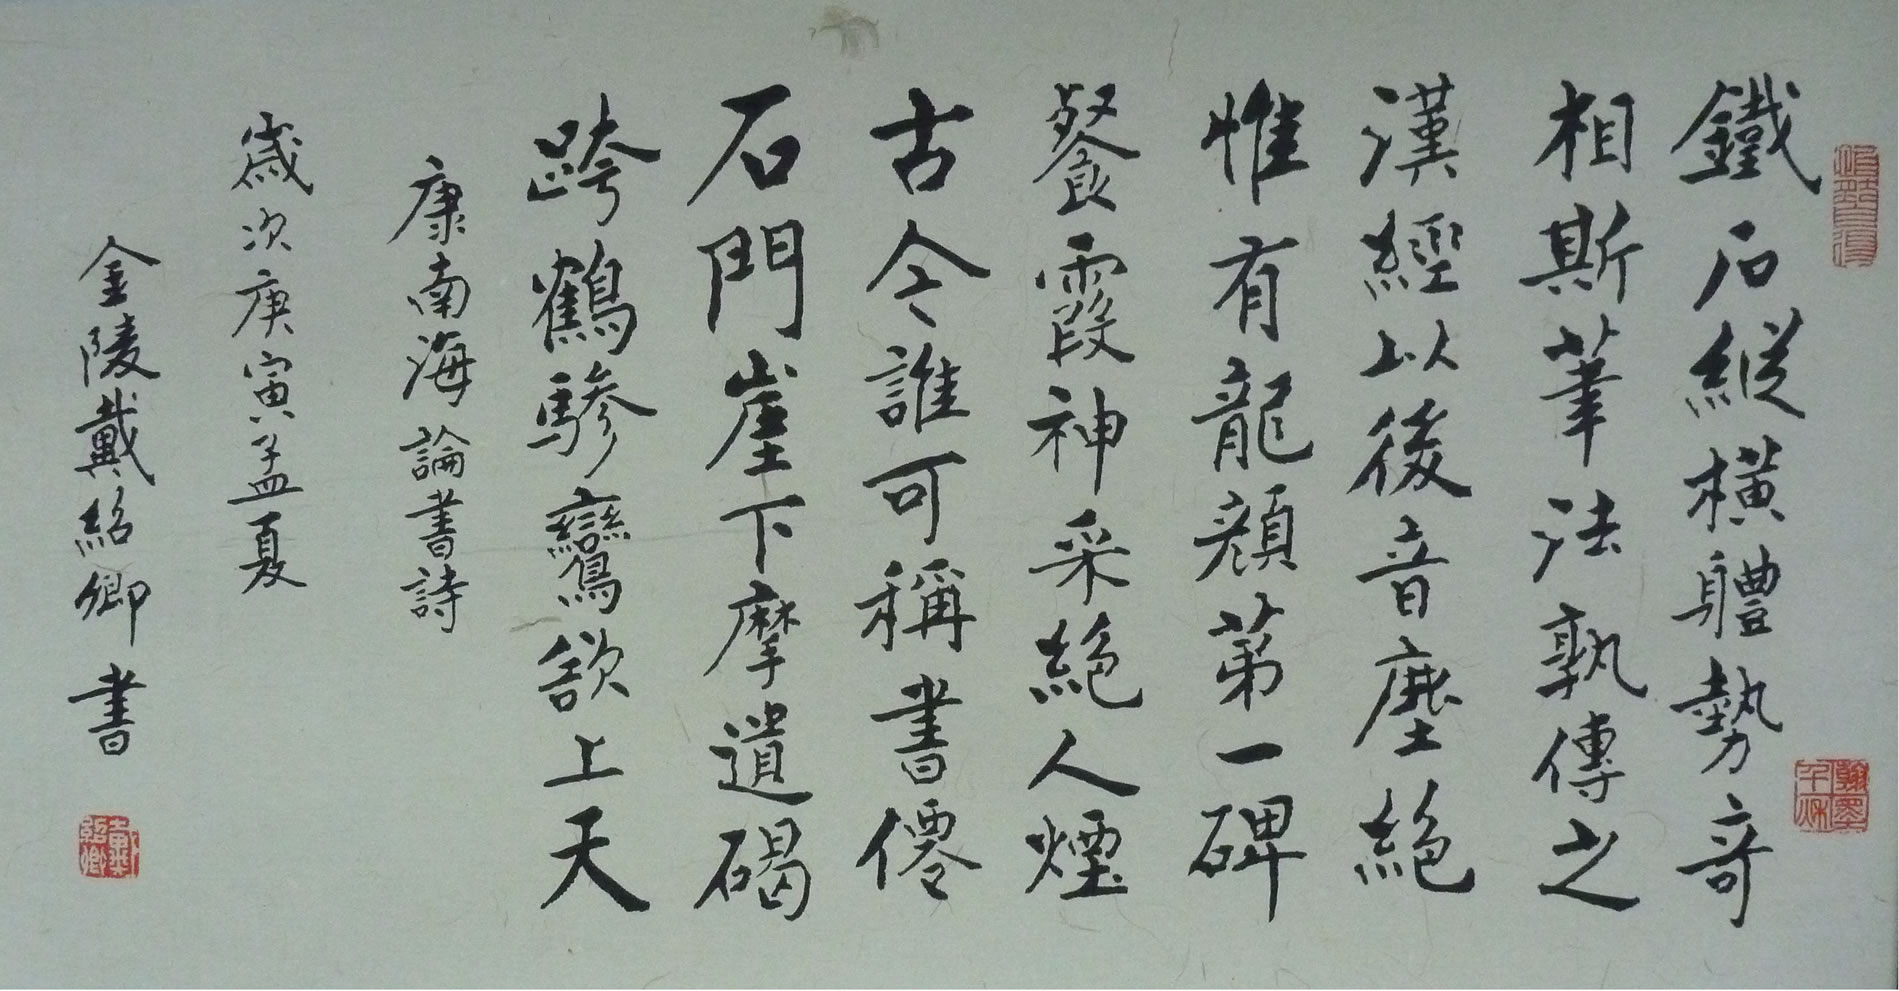 鐵石縱橫體勢奇
相斯筆法孰傳之
漢經以後音塵絕
惟有龍顏第一碑
餐霞神采絕人煙
古今誰可稱書僊
石門崖下摩遺碣
跨鶴驂鸞欲上天
康南海論書詩
歲次庚寅孟夏
金陵戴紹卿書
戴紹卿
翰墨千秋